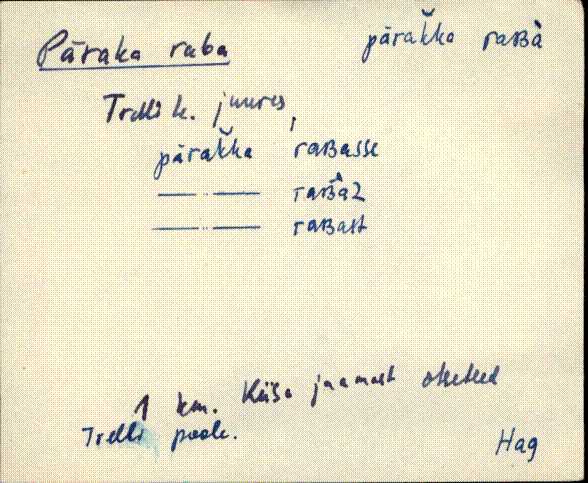 Päraka raba
pärak̆ka raʙà
Trelli k. juures,
pärak̆ka raʙasse
—〃— raʙ̀a2
—〃— raʙast
1 km. Kiisa jaamast otseteed
Trelli poole.
Hag